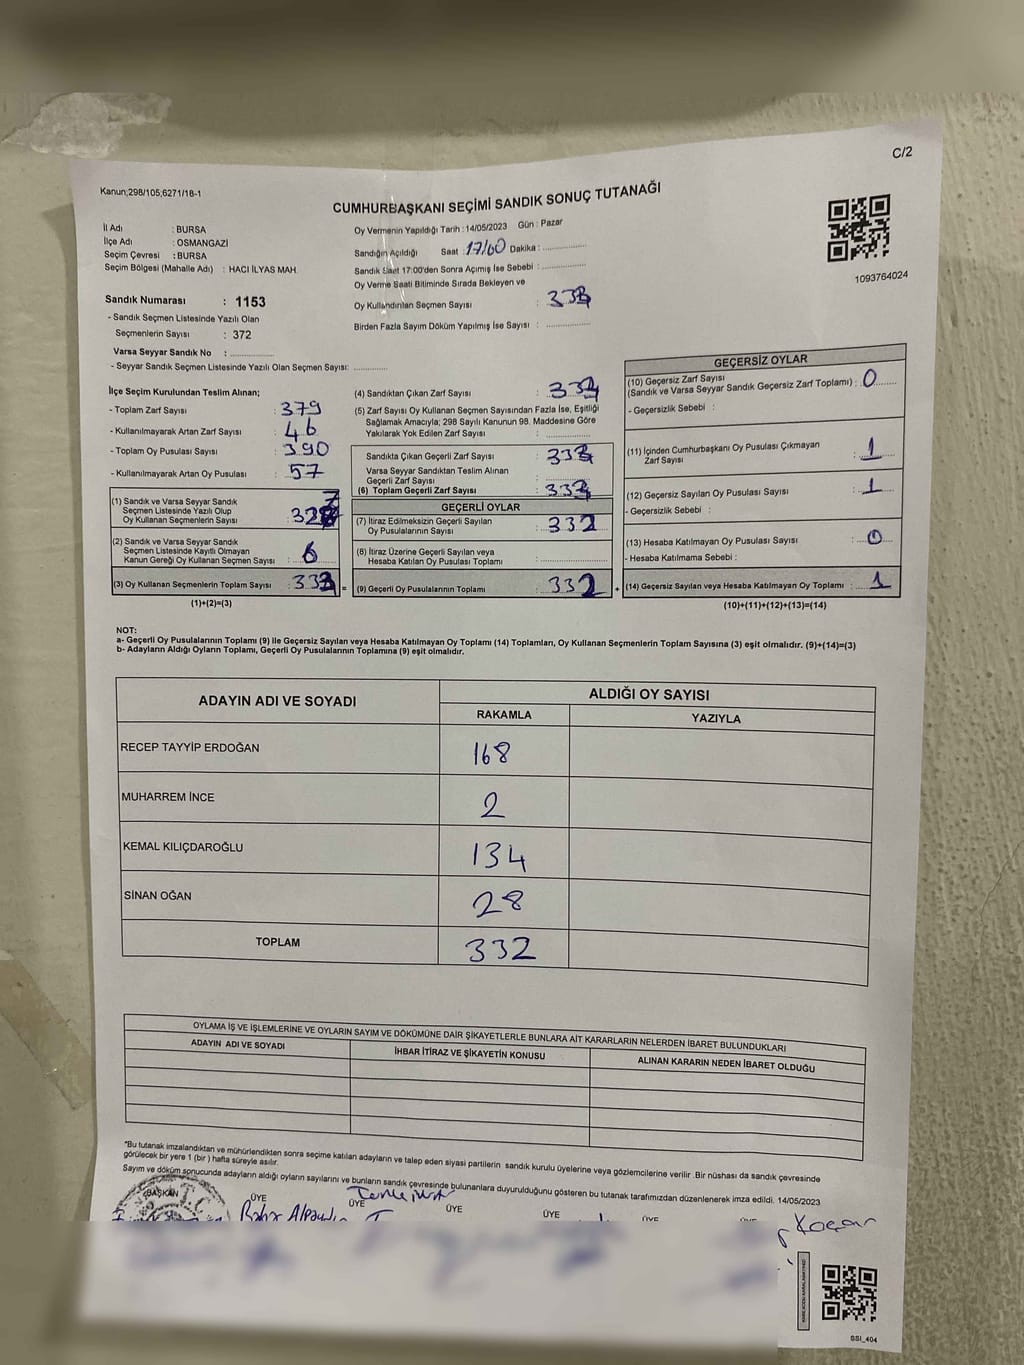 C/2
Kanun;298/105,6271/18-1
CUMHURBAŞKANI SEÇİMİ SANDIK SONUÇ TUTANAĞI
1093764024
İl Adı : BURSA
İlçe Adı : OSMANGAZİ
Seçim Çevresi : BURSA
Seçim Bölgesi (Mahalle Adı) : HACI İLYAS MAH.
Sandık Numarası : 1153
- Sandık Seçmen Listesinde Yazılı Olan
Seçmenlerin Sayısı : 372
Varsa Seyyar Sandık No : ..............
- Seyyar Sandık Seçmen Listesinde Yazılı Olan Seçmen Sayısı: ............
Oy Vermenin Yapıldığı Tarih : 14/05/2023 Gün : Pazar
Sandığın Açıldığı Saat : 17/00 Dakika : ..............
Sandık Saat 17:00'den Sonra Açımış İse Sebebi : ..............
Oy Verme Saati Bitiminde Sırada Bekleyen ve
Oy Kullandırılan Seçmen Sayısı : 333
Birden Fazla Sayım Döküm Yapılmış İse Sayısı : ..............
İlçe Seçim Kurulundan Teslim Alınan;
- Toplam Zarf Sayısı : 379
- Kullanılmayarak Artan Zarf Sayısı : 46
- Toplam Oy Pusulası Sayısı : 390
- Kullanılmayarak Artan Oy Pusulası : 57
(1) Sandık ve Varsa Seyyar Sandık
Seçmen Listesinde Yazılı Olup
Oy Kullanan Seçmenlerin Sayısı : 327
(2) Sandık ve Varsa Seyyar Sandık
Seçmen Listesinde Kayıtlı Olmayan
Kanun Gereği Oy Kullanan Seçmen Sayısı : 6
(3) Oy Kullanan Seçmenlerin Toplam Sayısı : 333 =
(1)+(2)=(3)
(4) Sandıktan Çıkan Zarf Sayısı : 333
(5) Zarf Sayısı Oy Kullanan Seçmen Sayısından Fazla İse, Eşitliği
Sağlamak Amacıyla; 298 Sayılı Kanunun 98. Maddesine Göre
Yakılarak Yok Edilen Zarf Sayısı : ..............
Sandıkta Çıkan Geçerli Zarf Sayısı : 333
Varsa Seyyar Sandıktan Teslim Alınan
Geçerli Zarf Sayısı : ..............
(6) Toplam Geçerli Zarf Sayısı : 333
GEÇERLİ OYLAR
(7) İtiraz Edilmeksizin Geçerli Sayılan
Oy Pusulalarının Sayısı : 332
(8) İtiraz Üzerine Geçerli Sayılan veya
Hesaba Katılan Oy Pusulası Toplamı : ..............
(9) Geçerli Oy Pusulalarının Toplamı : 332 +
GEÇERSİZ OYLAR
(10) Geçersiz Zarf Sayısı
(Sandık ve Varsa Seyyar Sandık Geçersiz Zarf Toplamı) : 0
- Geçersizlik Sebebi :
(11) İçinden Cumhurbaşkanı Oy Pusulası Çıkmayan
Zarf Sayısı : 1
(12) Geçersiz Sayılan Oy Pusulası Sayısı : 1
- Geçersizlik Sebebi :
(13) Hesaba Katılmayan Oy Pusulası Sayısı : 0
- Hesaba Katılmama Sebebi :
(14) Geçersiz Sayılan veya Hesaba Katılmayan Oy Toplamı : 1
(10)+(11)+(12)+(13)=(14)
NOT:
a- Geçerli Oy Pusulalarının Toplamı (9) ile Geçersiz Sayılan veya Hesaba Katılmayan Oy Toplamı (14) Toplamları, Oy Kullanan Seçmenlerin Toplam Sayısına (3) eşit olmalıdır. (9)+(14)=(3)
b- Adayların Aldığı Oyların Toplamı, Geçerli Oy Pusulalarının Toplamına (9) eşit olmalıdır.
ADAYIN ADI VE SOYADI
ALDIĞI OY SAYISI
RAKAMLA YAZIYLA
RECEP TAYYİP ERDOĞAN 168
MUHARREM İNCE 2
KEMAL KILIÇDAROĞLU 134
SİNAN OĞAN 28
TOPLAM 332
OYLAMA İŞ VE İŞLEMLERİNE VE OYLARIN SAYIM VE DÖKÜMÜNE DAİR ŞİKAYETLERLE BUNLARA AİT KARARLARIN NELERDEN İBARET BULUNDUKLARI
ADAYIN ADI VE SOYADI İHBAR İTİRAZ VE ŞİKAYETİN KONUSU ALINAN KARARIN NEDEN İBARET OLDUĞU
*Bu tutanak imzalandıktan ve mühürlendikten sonra seçime katılan adayların ve talep eden siyasi partilerin sandık kurulu üyelerine veya gözlemcilerine verilir .Bir nüshası da sandık çevresinde
görülecek bir yere 1 (bir ) hafta süreyle asılır.
Sayım ve döküm sonucunda adayların aldığı oyların sayılarını ve bunların sandık çevresinde bulunanlara duyurulduğunu gösteren bu tutanak tarafımızdan düzenlenerek imza edildi. 14/05/2023
BAŞKAN ÜYE ÜYE ÜYE ÜYE ÜYE
T.C.
Koçar
SSI_404